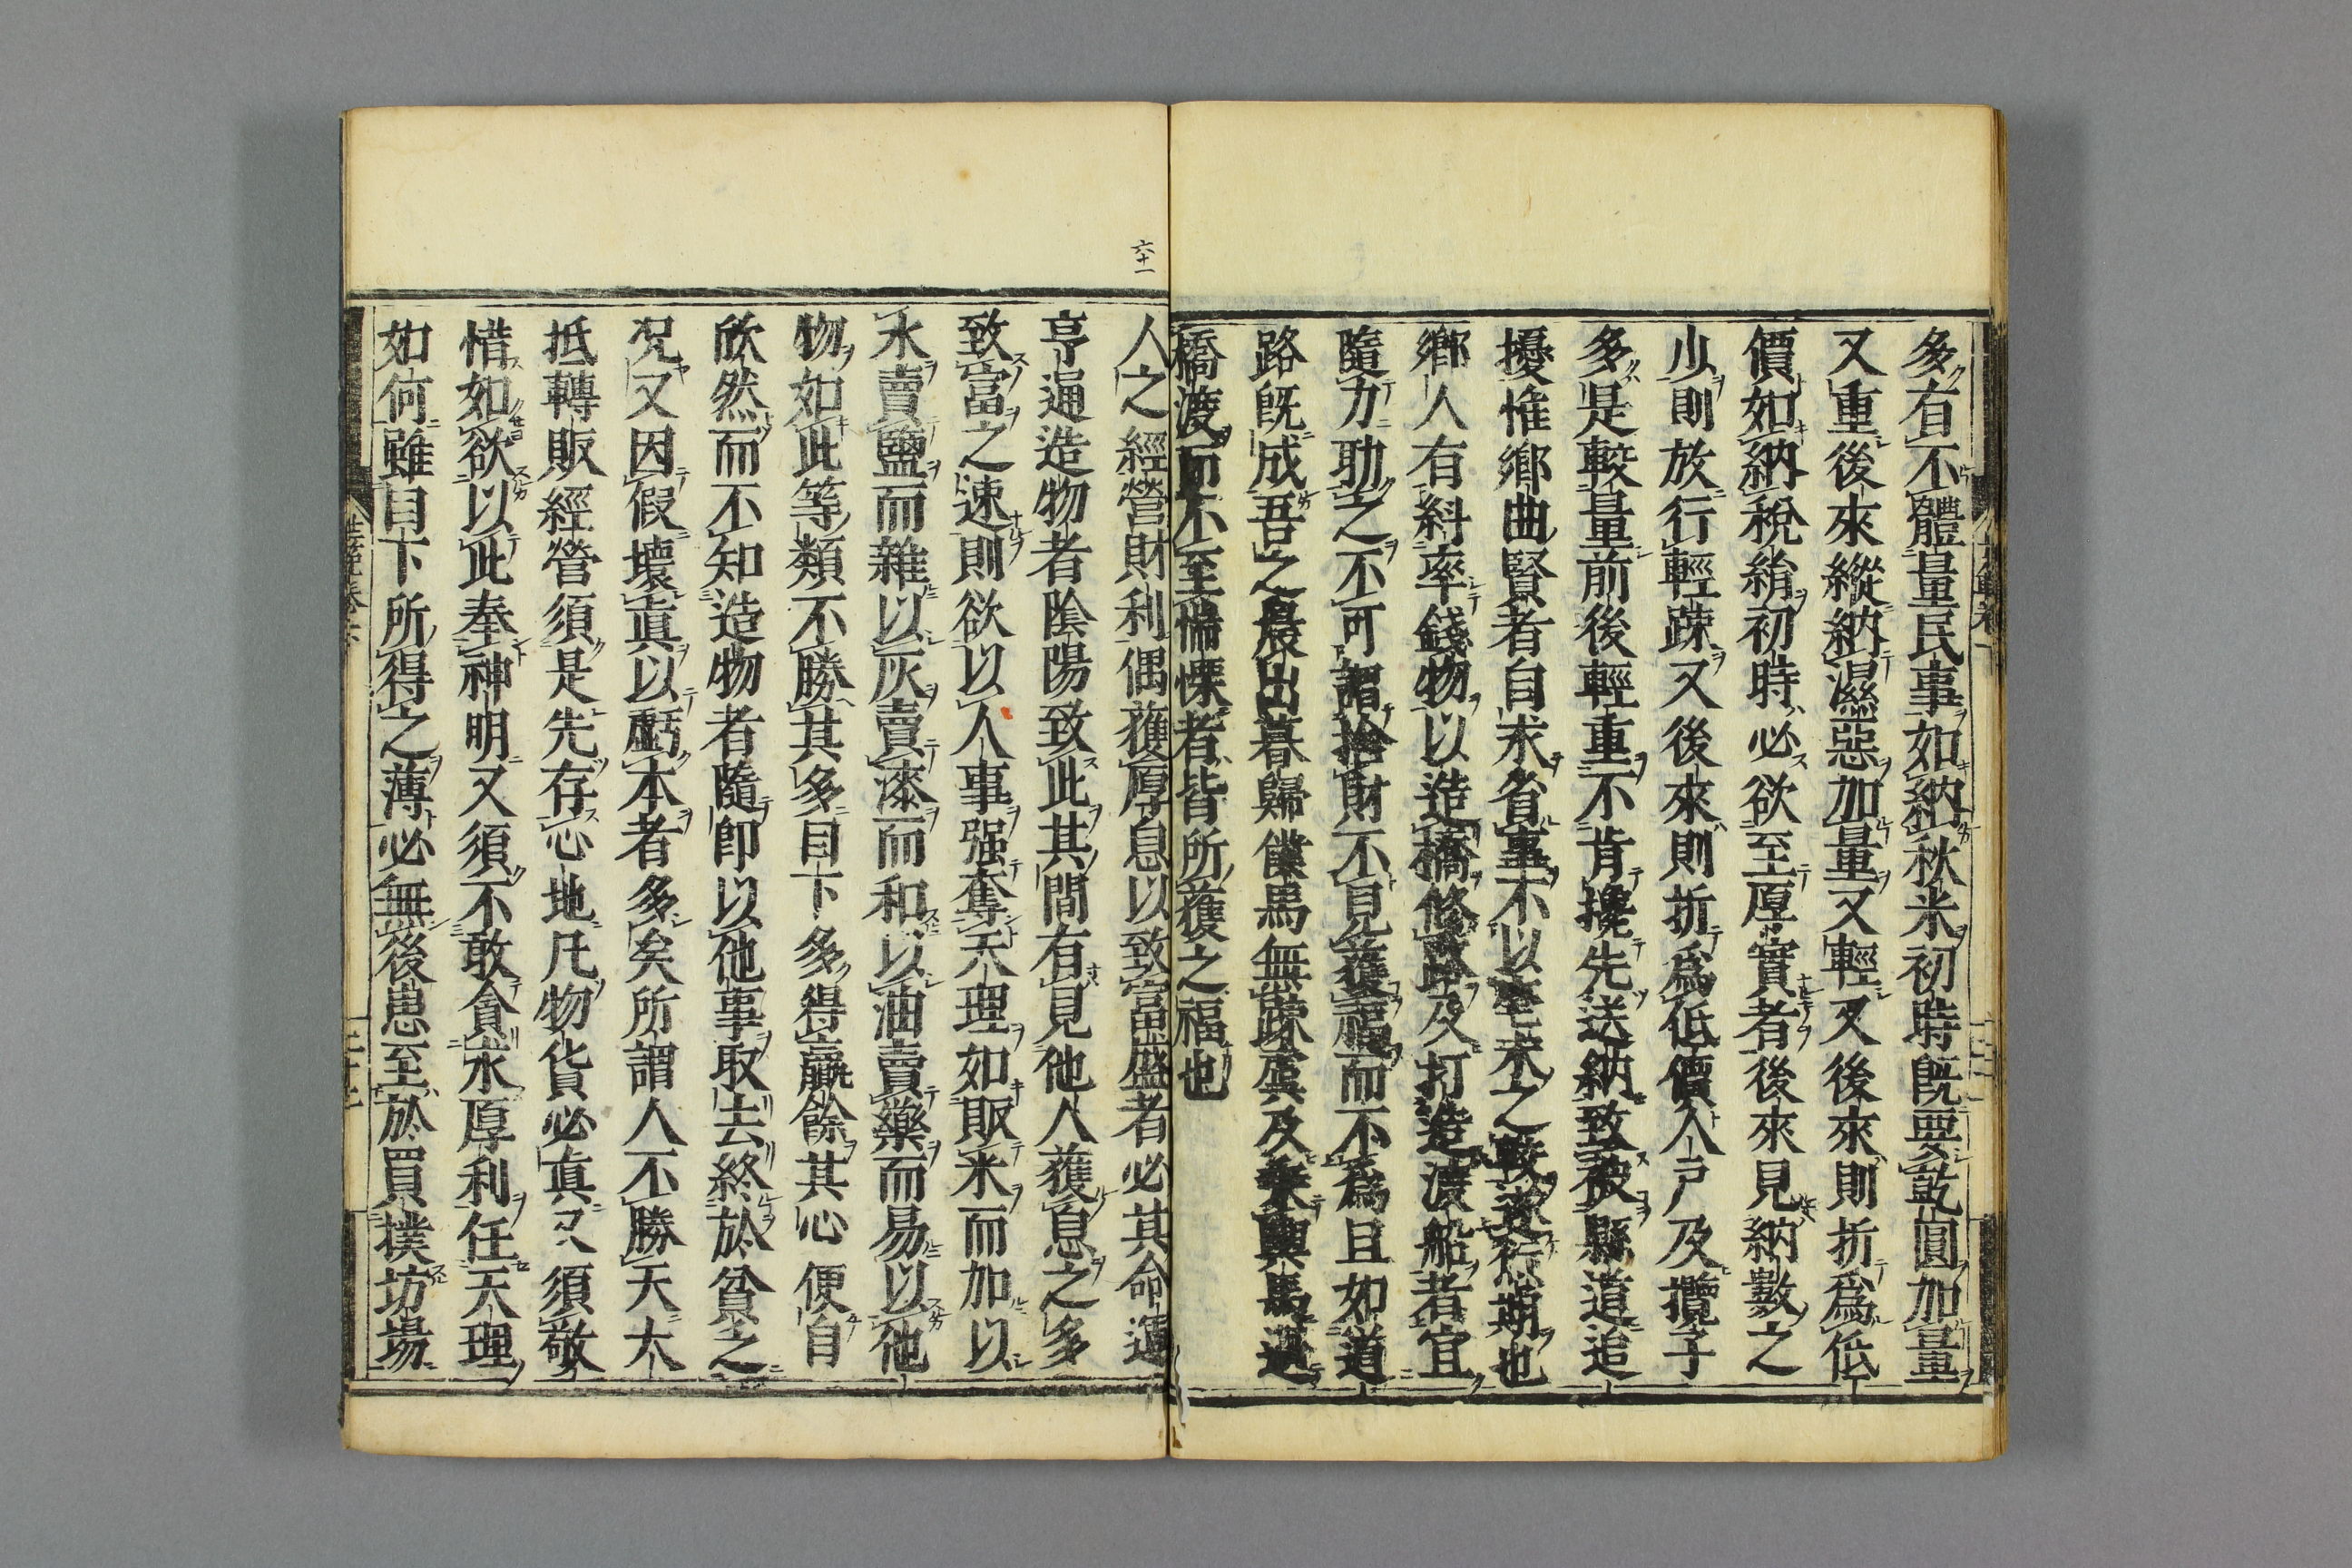 多有不體量民事如納秋米初時既要乾圓加量
又重後來縱納濕惡加量又輕又後來則折爲低
價如納稅絹初時必欲至厚實者後來見納數之
少則放行輕疎又後來則折爲低價人戶及攬子
多是較量前後輕重不肯攙先送納致被縣道追
擾惟鄉曲賢者自求省事不以毫末之較遂愆期也
鄉人有糾率錢物以造橋修路及打造渡船者宜
隨力助之不可謂捨財不見獲福而不爲且如道
路既成吾之晨出暮歸僕馬無疎虞及乗輿馬過
橋渡而不至惴慄者皆所獲之福也
六十一
人之經營財利偶獲厚息以致富盛者必其命運
亨通造物者陰陽致此其間有見他人獲息之多
致富之速則欲以人事强奪天理如販米而加以
水賣鹽而雜以灰賣漆而和以油賣藥而易以他
物如此等類不勝其多目下多得贏餘其心便自
欣然而不知造物者隨即以他事取去終於貧乏
况又因假壞真以虧本者多矣所謂人不勝天大
抵轉販經營須是先存心地凡物貨必真又須敬
惜如欲以此奉神明又須不敢貪求厚利任天理
如何雖目下所得之薄必無後患至於買撲坊場